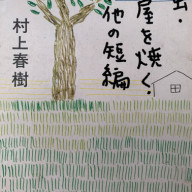 ・
屋を焼く・
他の短編
村上春樹